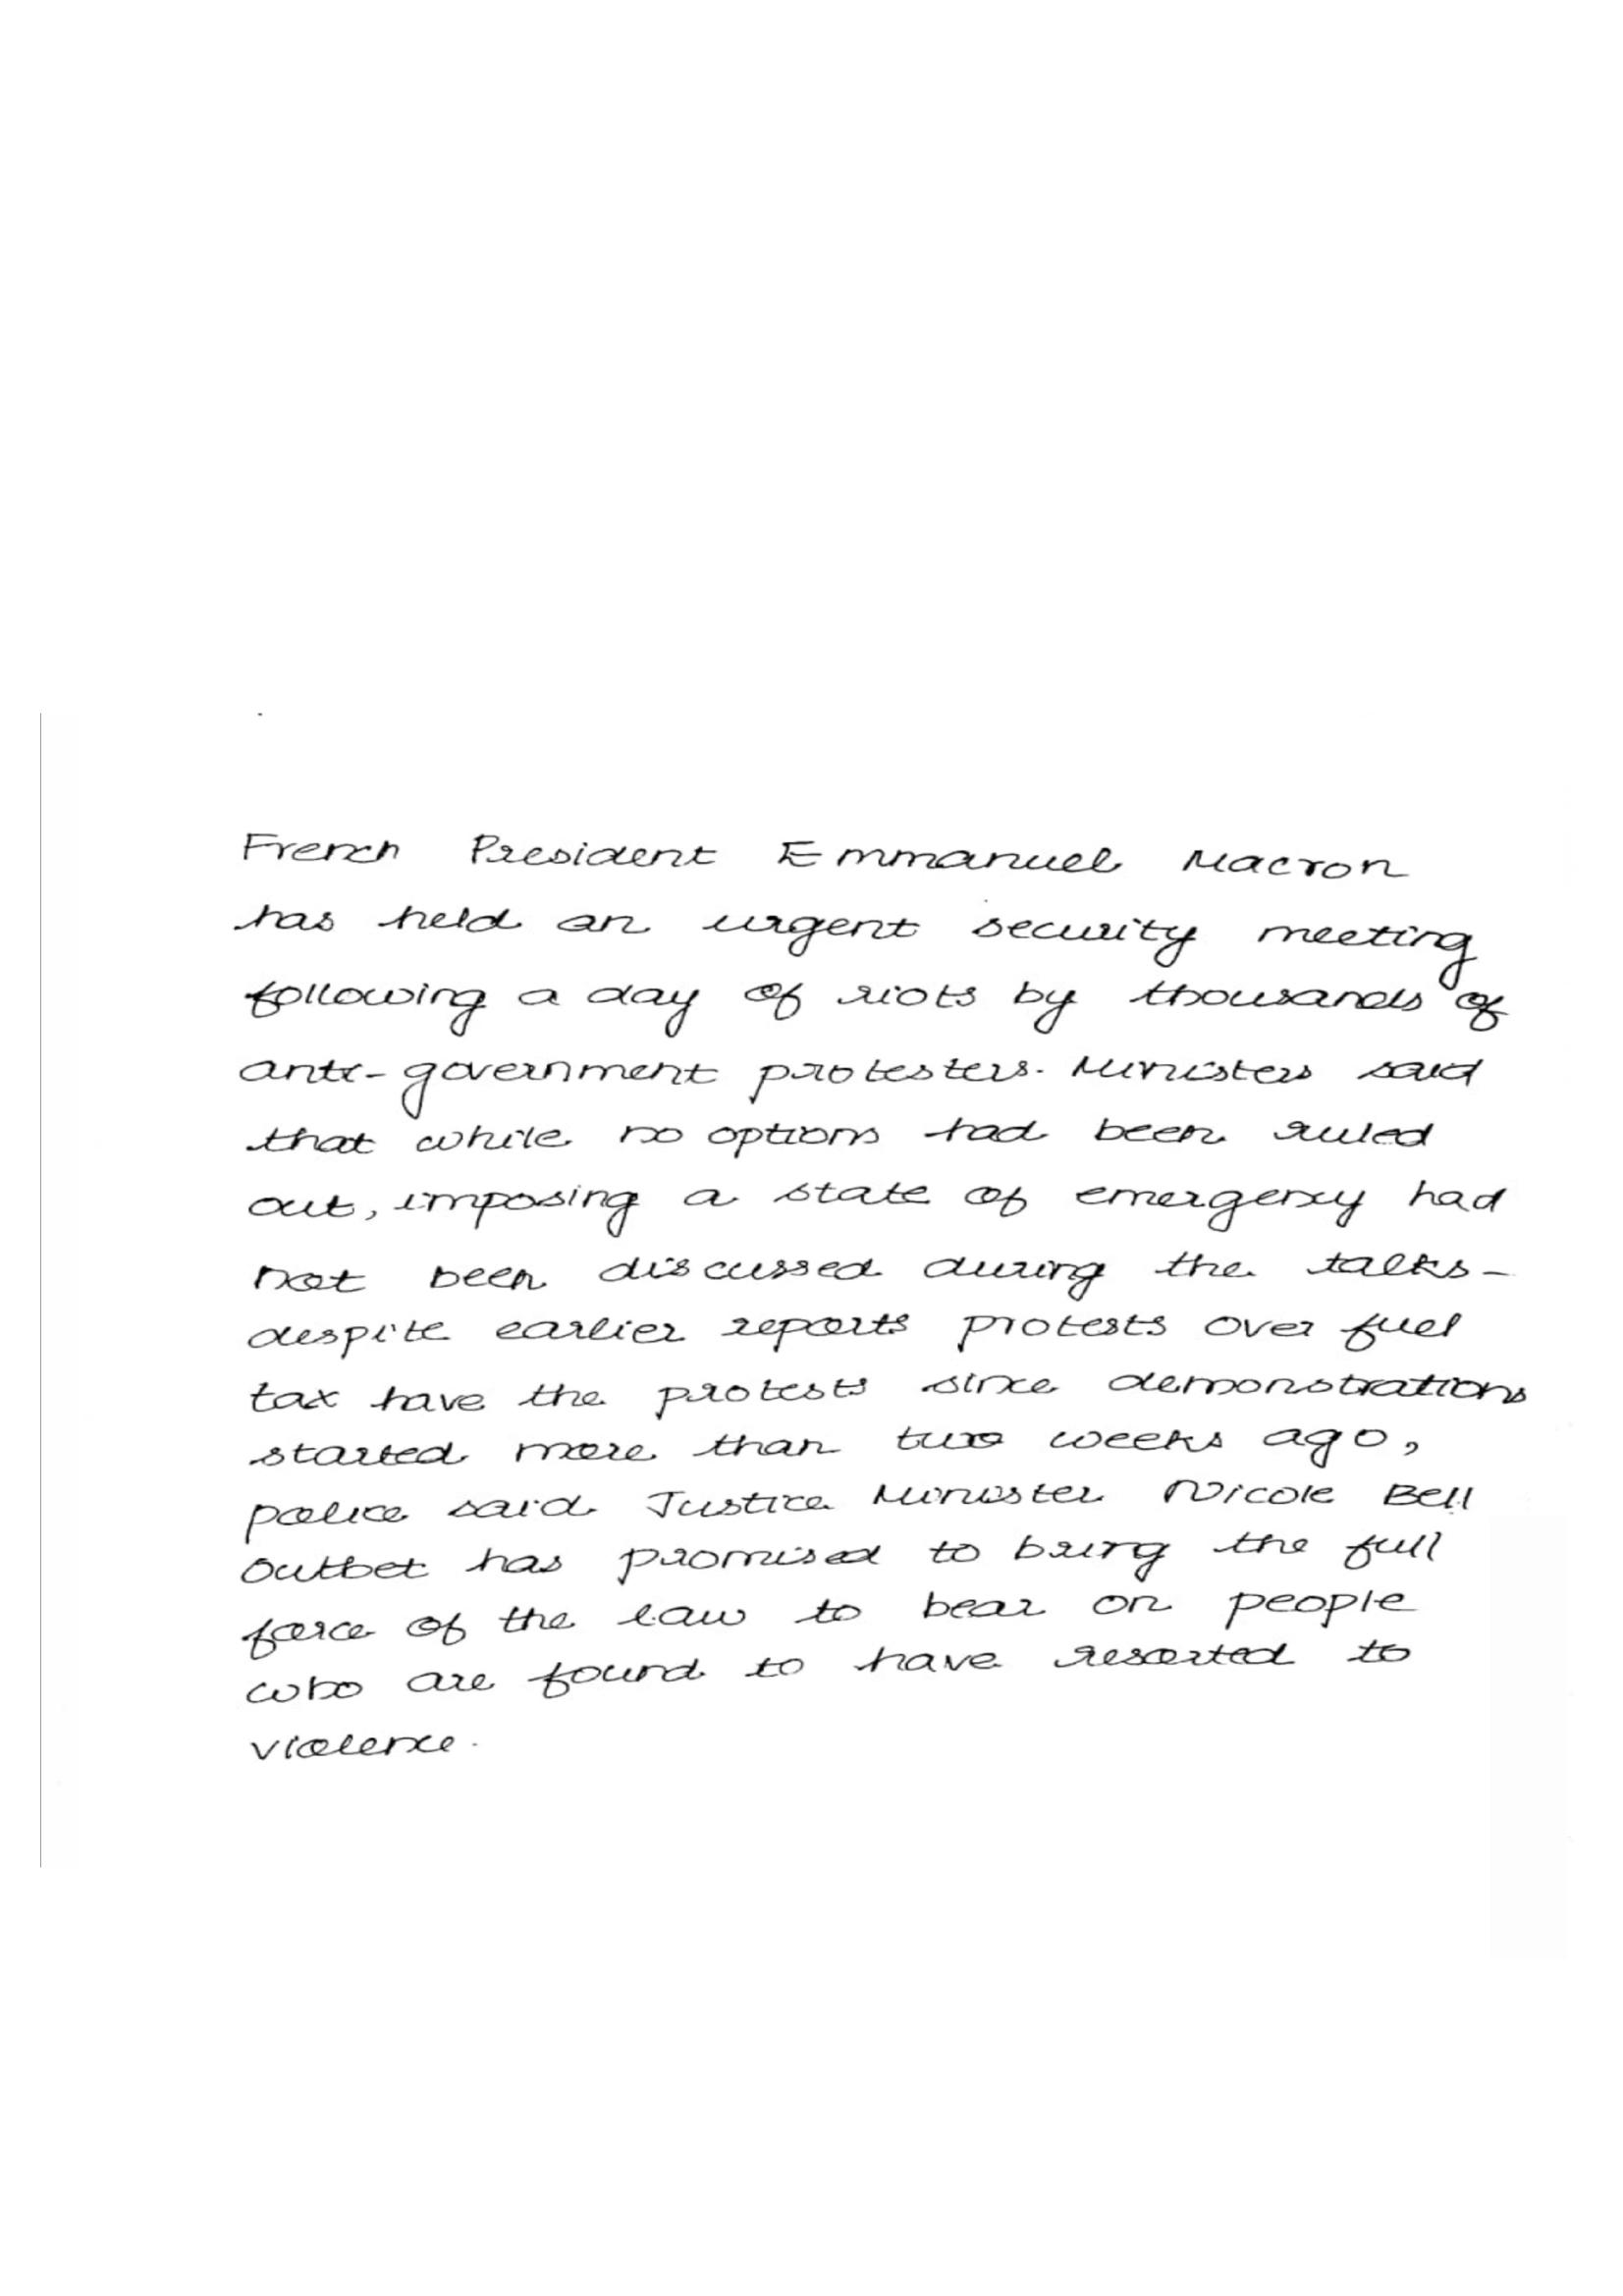 French President Emmanuel Macron
has held an urgent security meeting
following a day of riots by thousands of
anti-government protesters. Ministers said
that while no options had been ruled
out, imposing a state of emergency had
not been discussed during the talks-
despite earlier reports protests over fuel
tax have the protests since demonstrations
started more than two weeks ago,
police said Justice Minister Nicole Bell
Outbet has promised to bring the full
force of the law to bear on people
who are found to have resorted to
violence.